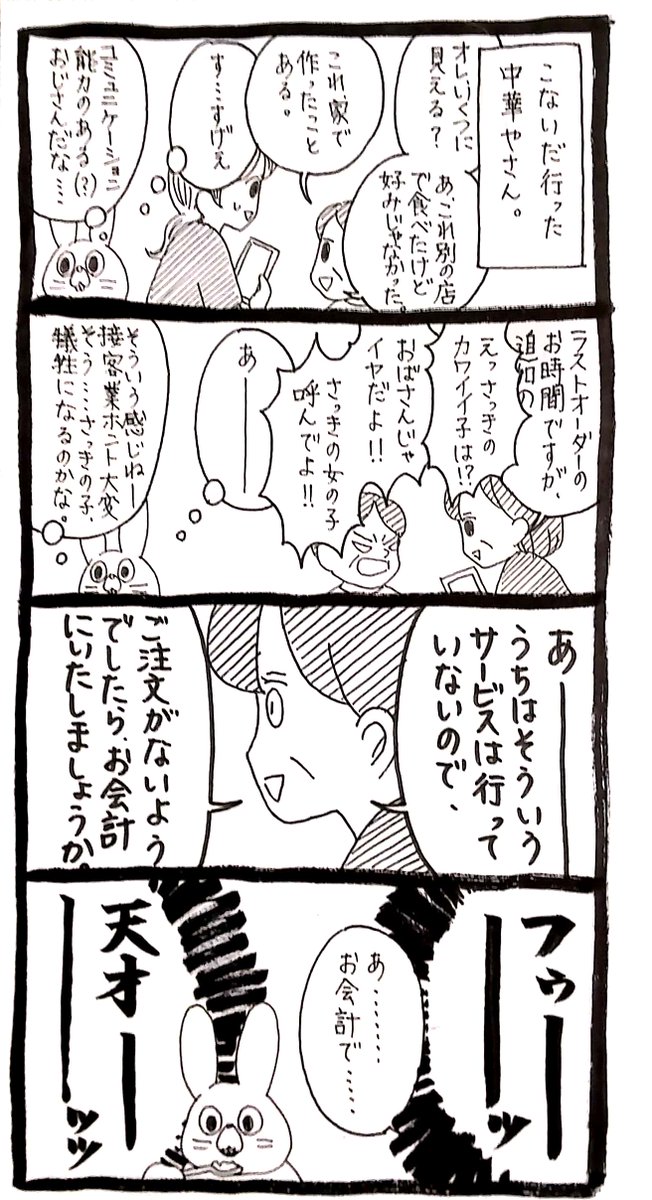 こないだ行った
中華やさん。
オレいくつに
見える?
あ、これ別の店
で食べたけど
好みじゃなかった。
これ家で
作ったこと
ある。
すごすげえ
コミュニケーション
能力のある(?)
おじさんだな…
ラストオーダーの
お時間ですが、
追加の
えっさっきの
カワイイ子は!?
おばさんじゃ
イヤだよ!!
さっきの女の子
呼んでよ!!
あーーー
そういう感じねー
接客業ホント大変
そう……さっきの子、
犠牲になるのかな。
あーーー
うちはそういう
サービスは行って
いないので、
ご注文がないよう
でしたら、お会計
にいたしましょうか。
フゥーーーーッ
あ………
お会計で……
天才ーーーーッッ